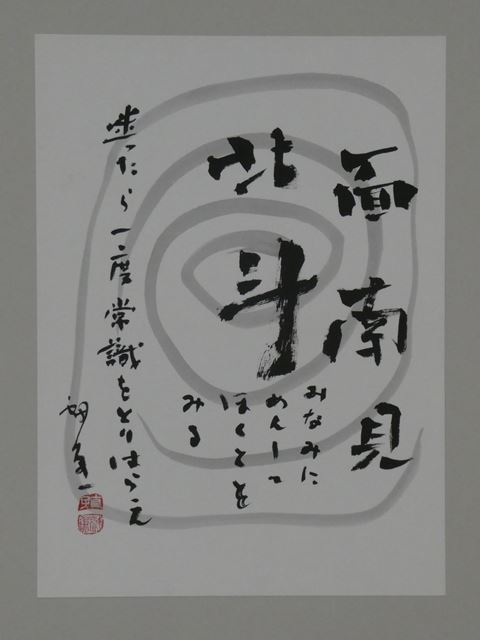 面南見
北斗
みなみに
めんして
ほくとを
みる
迷ったら一度常識をとりはらえ